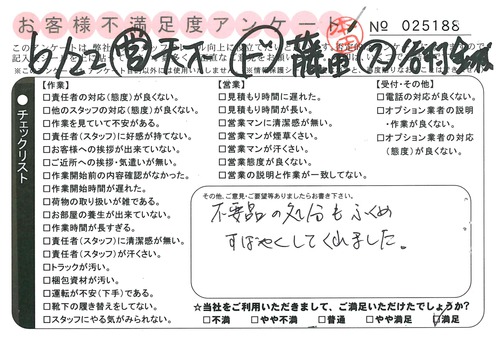 お客様不満足度アンケート
№ 025188
チェックリスト
【作業】
□責任者の対応(態度)が良くない。
□他のスタッフの対応(態度)が良くない。
□作業を見ていて不安がある。
□責任者(スタッフ)に好感が持てない。
□お客様への挨拶が出来ていない。
□ご近所への挨拶・気遣いが無い。
□作業開始前の内容確認がなかった。
□作業開始時間が遅れた。
□荷物の取り扱いが雑である。
□お部屋の養生が出来ていない。
□作業時間が長すぎる。
□責任者(スタッフ)に清潔感が無い。
□責任者(スタッフ)が汗くさい。
□トラックが汚い。
□梱包資材が汚い。
□運転が不安(下手)である。
□靴下の履き替えをしてない。
□スタッフにやる気がみられない。
【営業】
□見積もり時間に遅れた。
□見積もり時間が長い。
□営業マンに清潔感が無い。
□営業マンが煙草くさい。
□営業マンが汗くさい。
□営業態度が良くない。
□営業の説明と作業が一致してない。
【受付・その他】
□電話の対応が良くない。
□オプション業者の説明
・作業が良くない。
□オプション業者の対応
(態度)が良くない。
その他、ご意見・ご要望等ありましたらお書き下さい。
不要品の処分もふくめ
すばやくしてくれました。
☆当社をご利用いただきまして、ご満足いただけたでしょうか?
□不満 □やや不満 □普通 □やや満足 □満足